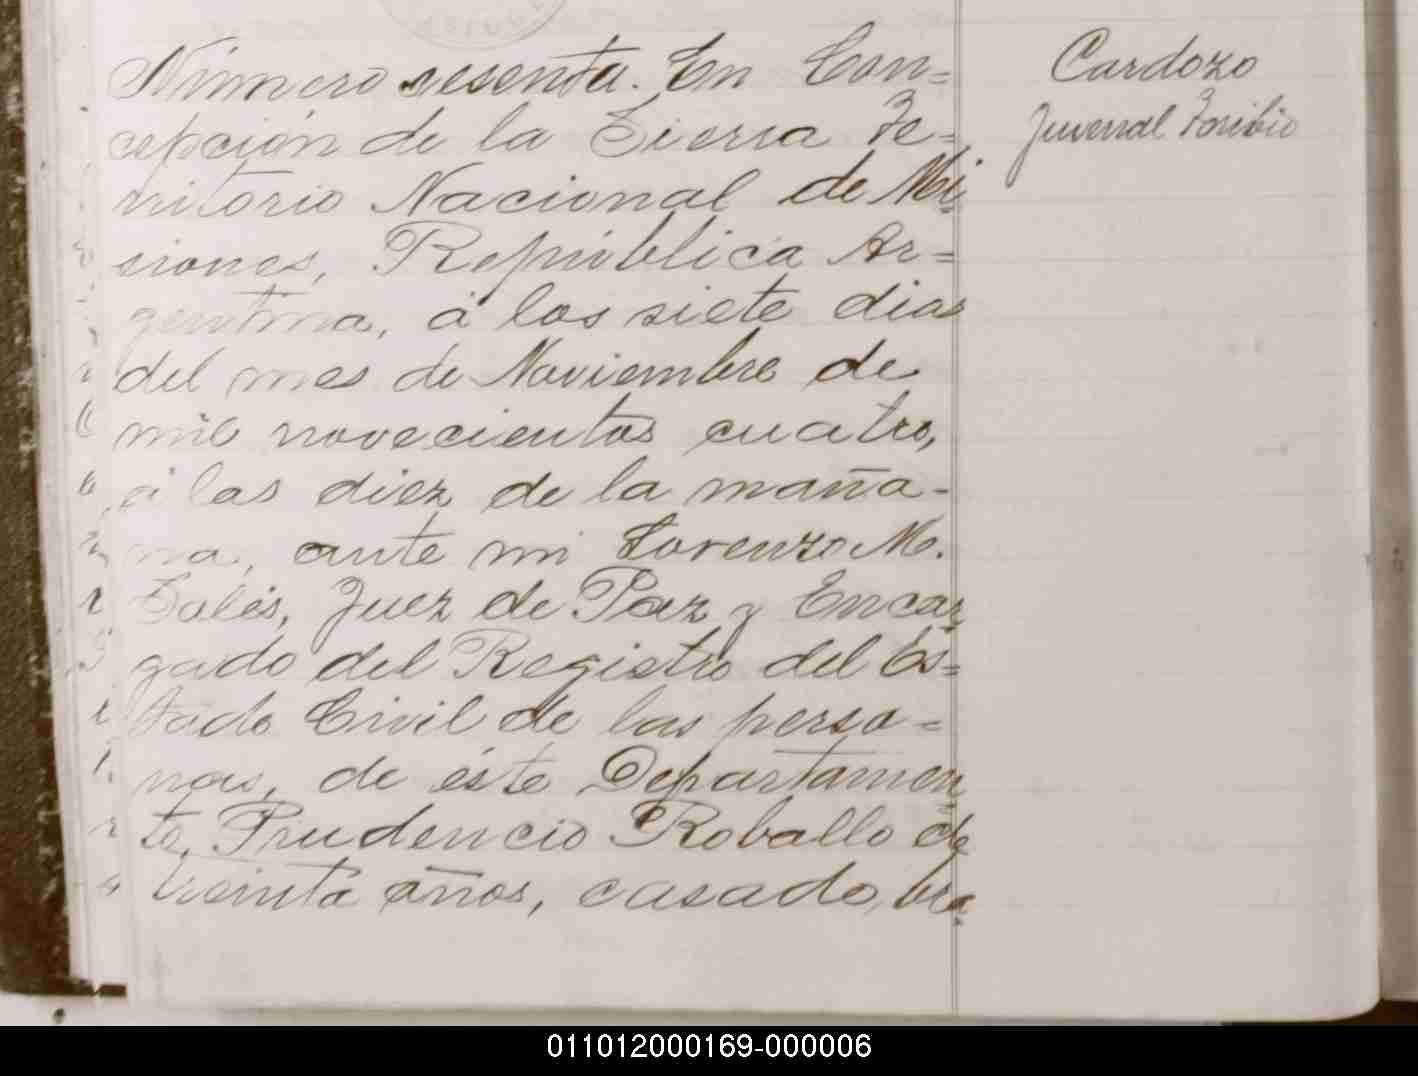 Número sesenta. En Con=
cepción de la Sierra Te=
rritorio Nacional de Mi=
siones, República Ar=
gentina, á los siete dias
del mes de Noviembre de
mil novecientos cuatro,
á las diez de la maña-
na, ante mi Lorenzo M.
Salés, Juez de Paz y Encar=
gado del Registro del Es=
tado Civil de las perso=
nas, de éste Departamen=
to, Prudencio Roballo de
treinta años, casado, bra=
Cardozo
Juvenal Toribio
011012000169-000006